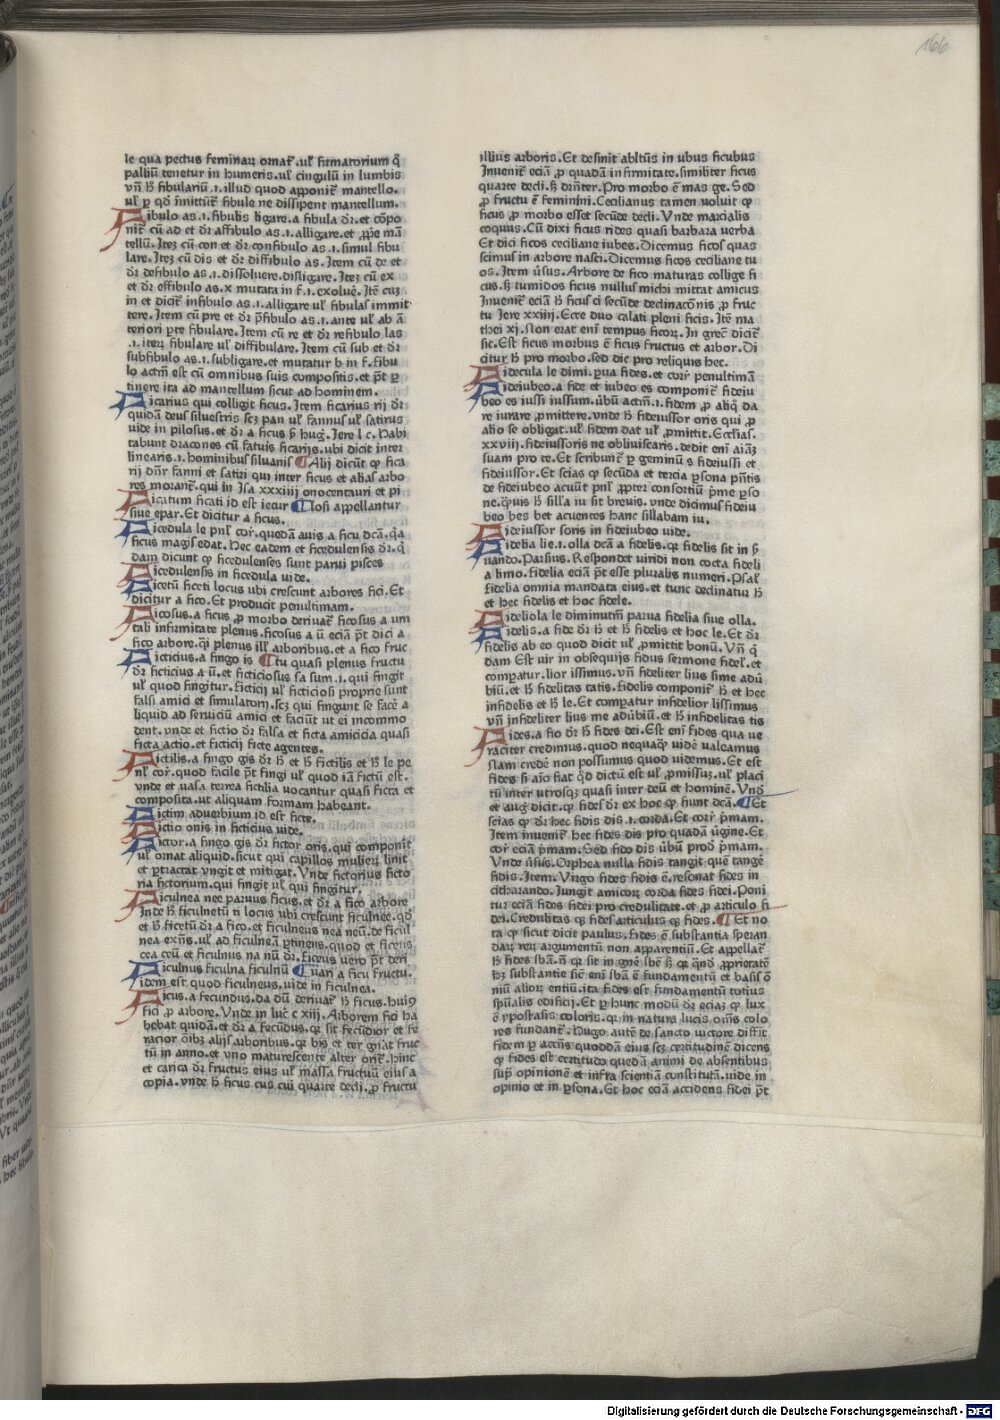 166
le qua pectus feminarꝝ ornat᷑.ul᷑ firmatorium q̄
palliū tenetur in humeris.ul᷑ cingulū in lumbis
vn̄ h̄ fibulariū .i.illud quod apponit᷑ mantello.
ul᷑ ꝑ qd̄ īmittūt᷑ fibule ne dissipent mantellum.
Fibulo as .i.fibulis ligare.a fibula dr̄.et cōpo
nit᷑ cū ad et dr̄ affibulo as .i.alligare.et ꝓpe mā
tellū.Iteꝫ cū con et dr̄ confibulo as .i.simul fibu
lare.Iteꝫ cū dis et dr̄ diffibulo as.Item cū de et
dr̄ defibulo as .i.dissoluere.disligare.Iteꝫ cū ex
et dr̄ effibulo as.x mutata in f.i.exoluē.Itē cuꝫ
in et dicit᷑ infibulo as .i.alligare ul᷑ fibulas immit
tere.Item cū pre et dr̄ p̄fibulo as .i.ante ul᷑ ab ā
teriori ꝑte fibulare.Item cū re et dr̄ refibulo las
.i.iteꝝ fibulare ul᷑ diffibulare.Item cū sub et dr̄
subfibulo as .i.subligare.et mutatur b in f.fibu
lo actm̄ est cū omnibus suis compositis.et p̄t ꝑ
tinere ita ad mantellum sicut ad hominem.
Ficarius qui colligit ficus.Item ficarius rij dr̄
quidā deus siluestris scꝫ pan ul᷑ faunus ul᷑ satirus
uide in pilosus.et dr̄ a ficus ꝑ hug̅.Iere l c.Habi
tabunt dracones cū fatuis ficarijs.ubi dicit inter
linearis .i.hominibus siluanis ¶Alij dicūt ꝙ fica
rij dn̄r fanni et satiri qui inter ficus et alias arbo
res morant᷑.qui in Isa xxxiiij onocentauri et pi
Ficatum ficati id est iecur ¶losi appellantur
siue epar.Et dicitur a ficus.
Ficedula le pnl᷑ cor᷑.quedā auis a ficu dcā.qꝛ
ficus magis edat.Hec eadem et ficedulensis dr̄.q̄
dam dicunt ꝙ ficedulenses sunt parui pisces
Ficedulensis in ficedula uide.
Ficetū ficeti locus ubi crescunt arbores fici.Et
dicitur a fico.Et producit penultimam.
Ficosus.a ficus ꝓ morbo deriuat᷑ ficosus a um
tali infirmitate plenus.ficosus a ū eciā p̄t dici a
fico arbore.qͥ plenus ill᷑ arboribus.et a fico fruc
Ficticius.a fingo is ¶tu quasi plenus fructu
dr̄ ficticius a ū.et ficticiosus sa sum .i.qui fingit
ul᷑ quod fingitur.ficticij ul᷑ ficticiosi proprie sunt
falsi amici et simulatori.scꝫ qui fingunt se facē a
liquid ad seruiciū amici et faciūt ut ei incommo
dent.vnde et fictio dr̄ falsa et ficta amicicia quasi
ficta actio.et ficticij ficte agentes.
Fictilis.a fingo gis dr̄ h̄ et h̄ fictilis et h̄ le pe
nl᷑ cor᷑.quod facile p̄t fingi ul᷑ quod iā fictū est.
vnde et uasa terrea fictilia vocantur quasi ficta et
composita.ut aliquam formam habeant.
Fictim aduerbium id est ficte.
Fictio onis in ficticius uide.
Fictor.a fingo gis dr̄ fictor oris.qui componit
ul᷑ ornat aliquid.sicut qui capillos mulieꝝ linit
et ꝑtractat vngit et mitigat.Vnde fictorius ficto
ria fictorium.qui fingit ul᷑ qui fingitur.
Ficulnea nee paruus ficus.et dr̄ a fico arbore
Inde h̄ ficulnetū ti locus ubi crescunt ficulnee.qd̄
et h̄ ficetū dr̄ a fico.et ficulneus nea neū.de ficul
nea exn̄s.ul᷑ ad ficulneā ꝑtinens.quod et ficeus
cea ceū et ficulnus na nū dr̄.ficeus uero p̄t deri
Ficulnus ficulna ficulnū ¶uari a ficu fructu.
idem est quod ficulneus.uide in ficulnea.
Ficus.a fecundus.da dū deriuat᷑ h̄ ficus.huiꝰ
fici ꝓ arbore.Vnde in luc̄ c xiij.Arborem fici ha
bebat quidā.et dr̄ a fecūdus.qꝛ sit fecūdior et fe
racior oībꝫ alijs arboribus.qꝛ bis et ter gn̄at fruc
tū in anno.et vno maturescente alter orit᷑.hinc
et carica dr̄ fructus eius ul᷑ massa fructuū eius a
copia.vnde h̄ ficus cus cui quarte decli.ꝓ fructu
illius arboris.Et desinit abltūs in ubus ficubus
Inuenit᷑ eciā ꝓ quadā infirmitate.similiter ficus
quarte decli.sꝫ dr̄nter.Pro morbo ē mas ge.Sed
ꝓ fructu ē feminini.Cecilianus tamen uoluit ꝙ
ficus ꝓ morbo esset secūde decli.Vnde marcialis
coquus.Cū dixi ficus rides quasi barbara uerba
Et dici ficos ceciliane iubes.Dicemus ficos quas
scimus in arbore nasci.Dicemus ficos ceciliane tu
os.Item ūsus.Arbore de fico maturas collige fi
cus.sꝫ tumidos ficus nullus michi mittat amicus
Inuenit᷑ eciā h̄ ficus ci secūde declinacōnis ꝓ fruc
tu Iere xxiiij.Ecce duo calati pleni ficis.Itē ma
thei xj.Non erat enī tempus ficoꝝ.In grec̄ dicit᷑
sic.Est ficus morbus ē ficus fructus et arbor.Di
citur h̄ pro morbo.sed dic pro reliquis hec.
Fidecula le dimi.ꝑua fides.et corr̄ penultimā
Fideiubeo.a fide et iubeo es componit᷑ fideiu
beo es iussi iussum.ūbū actm̄ .i.fidem ꝓ aliq̄ da
re iurare ꝓmittere.vnde h̄ fideiussor oris qui ꝓ
alio se obligat.ul᷑ fidem dat ul᷑ ꝓmittit.Eccl̄ias.
xxviij.fideiussoris ne obliuiscaris.dedit enī aīaꝫ
suam pro te.Et scribunt᷑ ꝑ geminū s fideiussi et
fideiussor.Et scias ꝙ secūda et tercia ꝑsona pn̄tis
de fideiubeo acuūt pnl᷑ ꝓpter consortiū p̄me ꝑso
ne.qͣuis h̄ silla iu sit breuis.vnde dicimus fideiu
beo bes bet acuentes hanc sillabam iu.
Fideiussor soris in fideiubeo uide.
Fidelia lie .i.olla dcā a fidelis.qꝛ fidelis sit in ẜ
uando.Parsius.Respondet uiridi non cocta fideli
a limo.fidelia eciā p̄t esse pluralis numeri.Psal᷑
fidelia omnia mandata eius.et tunc declinatur h̄
et hec fidelis et hoc fidele.
Fideliola le diminutm̄ parua fidelia siue olla.
Fidelis.a fide dr̄ h̄ et h̄ fidelis et hoc le.Et dr̄
fidelis ab eo quod dicit ul᷑ ꝓmittit bonū.Vn̄ q̄
dam Est uir in obsequijs fidus sermone fidel᷑.et
compatur.lior issimus.vn̄ fideliter lius sime adū
biū.et h̄ fidelitas tatis.fidelis componit᷑ h̄ et hec
infidelis et h̄ le.Et compatur infidelior lissimus
vn̄ infideliter lius me adūbiū.et h̄ infidelitas tis
Fides.a fio dr̄ h̄ fides dei.Est enī fides qua ue
raciter credimus.quod nequaqͣ uidē valeamus
Nam credē non possumus quod uidemus.Et est
fides si aīo fiat qd̄ dictū est ul᷑ ꝓmissuꝫ.ul᷑ placi
tū inter utrosqꝫ quasi inter deū et hominē.Vnd̄
et aug̅ dicit.ꝙ fides dr̄ ex hoc ꝙ fiunt dcā.¶Et
scias ꝙ dr̄ hec fidis dis .i.corda.Et corr̄ p̄mam.
Item inuenit᷑ hec fides dis pro quadā ūgine.Et
cor̄ eciā p̄mam.Sed fido dis ūbū prod̄ p̄mam.
Vnde ūsus.Orphea nulla fidis tangit quē tangē
fidis.Item.Virgo fides fidis ē.resonat fides in
citharando.Iungit amicoꝝ corda fides fidei.Poni
tur eciā fides fidei pro credulitate.et ꝓ articulo fi
dei.Credulitas ꝙ fides articulus ꝙ fides.¶Et no
ta ꝙ sicut dicit paulus.fides ē substantia speran
daꝝ reꝝ argumentū non apparentiū.Et appellat᷑
h̄ fides sbā.n̄ qꝛ sit in gn̄e sbē sꝫ qꝛ qn̄d̄ ꝓprietatē
hꝫ substantie sic̄ enī sbā ē fundamentū et basis ō
niū alioꝝ entiū.ita fides est fundamentū totius
spūalis edificij.Et ꝑ hunc modū dr̄ eciaꝫ ꝙ lux
ē ypostasis coloris.qꝛ in natura lucis oīns colo
res fundant᷑.Hugo autē de sancto uictore diffīt
fidem ꝑ accn̄s quoddā eius scꝫ certitudinē dicens
ꝙ fides est certitudo quedā animi de absentibus
supͣ opinionē et infra scientiā constitutā.uide in
opinio et in ꝑsona.Et hoc eciā accidens fidei p̄t
Digitalisierung gefördert durch die Deutsche Forschungsgemeinschaft - DFG